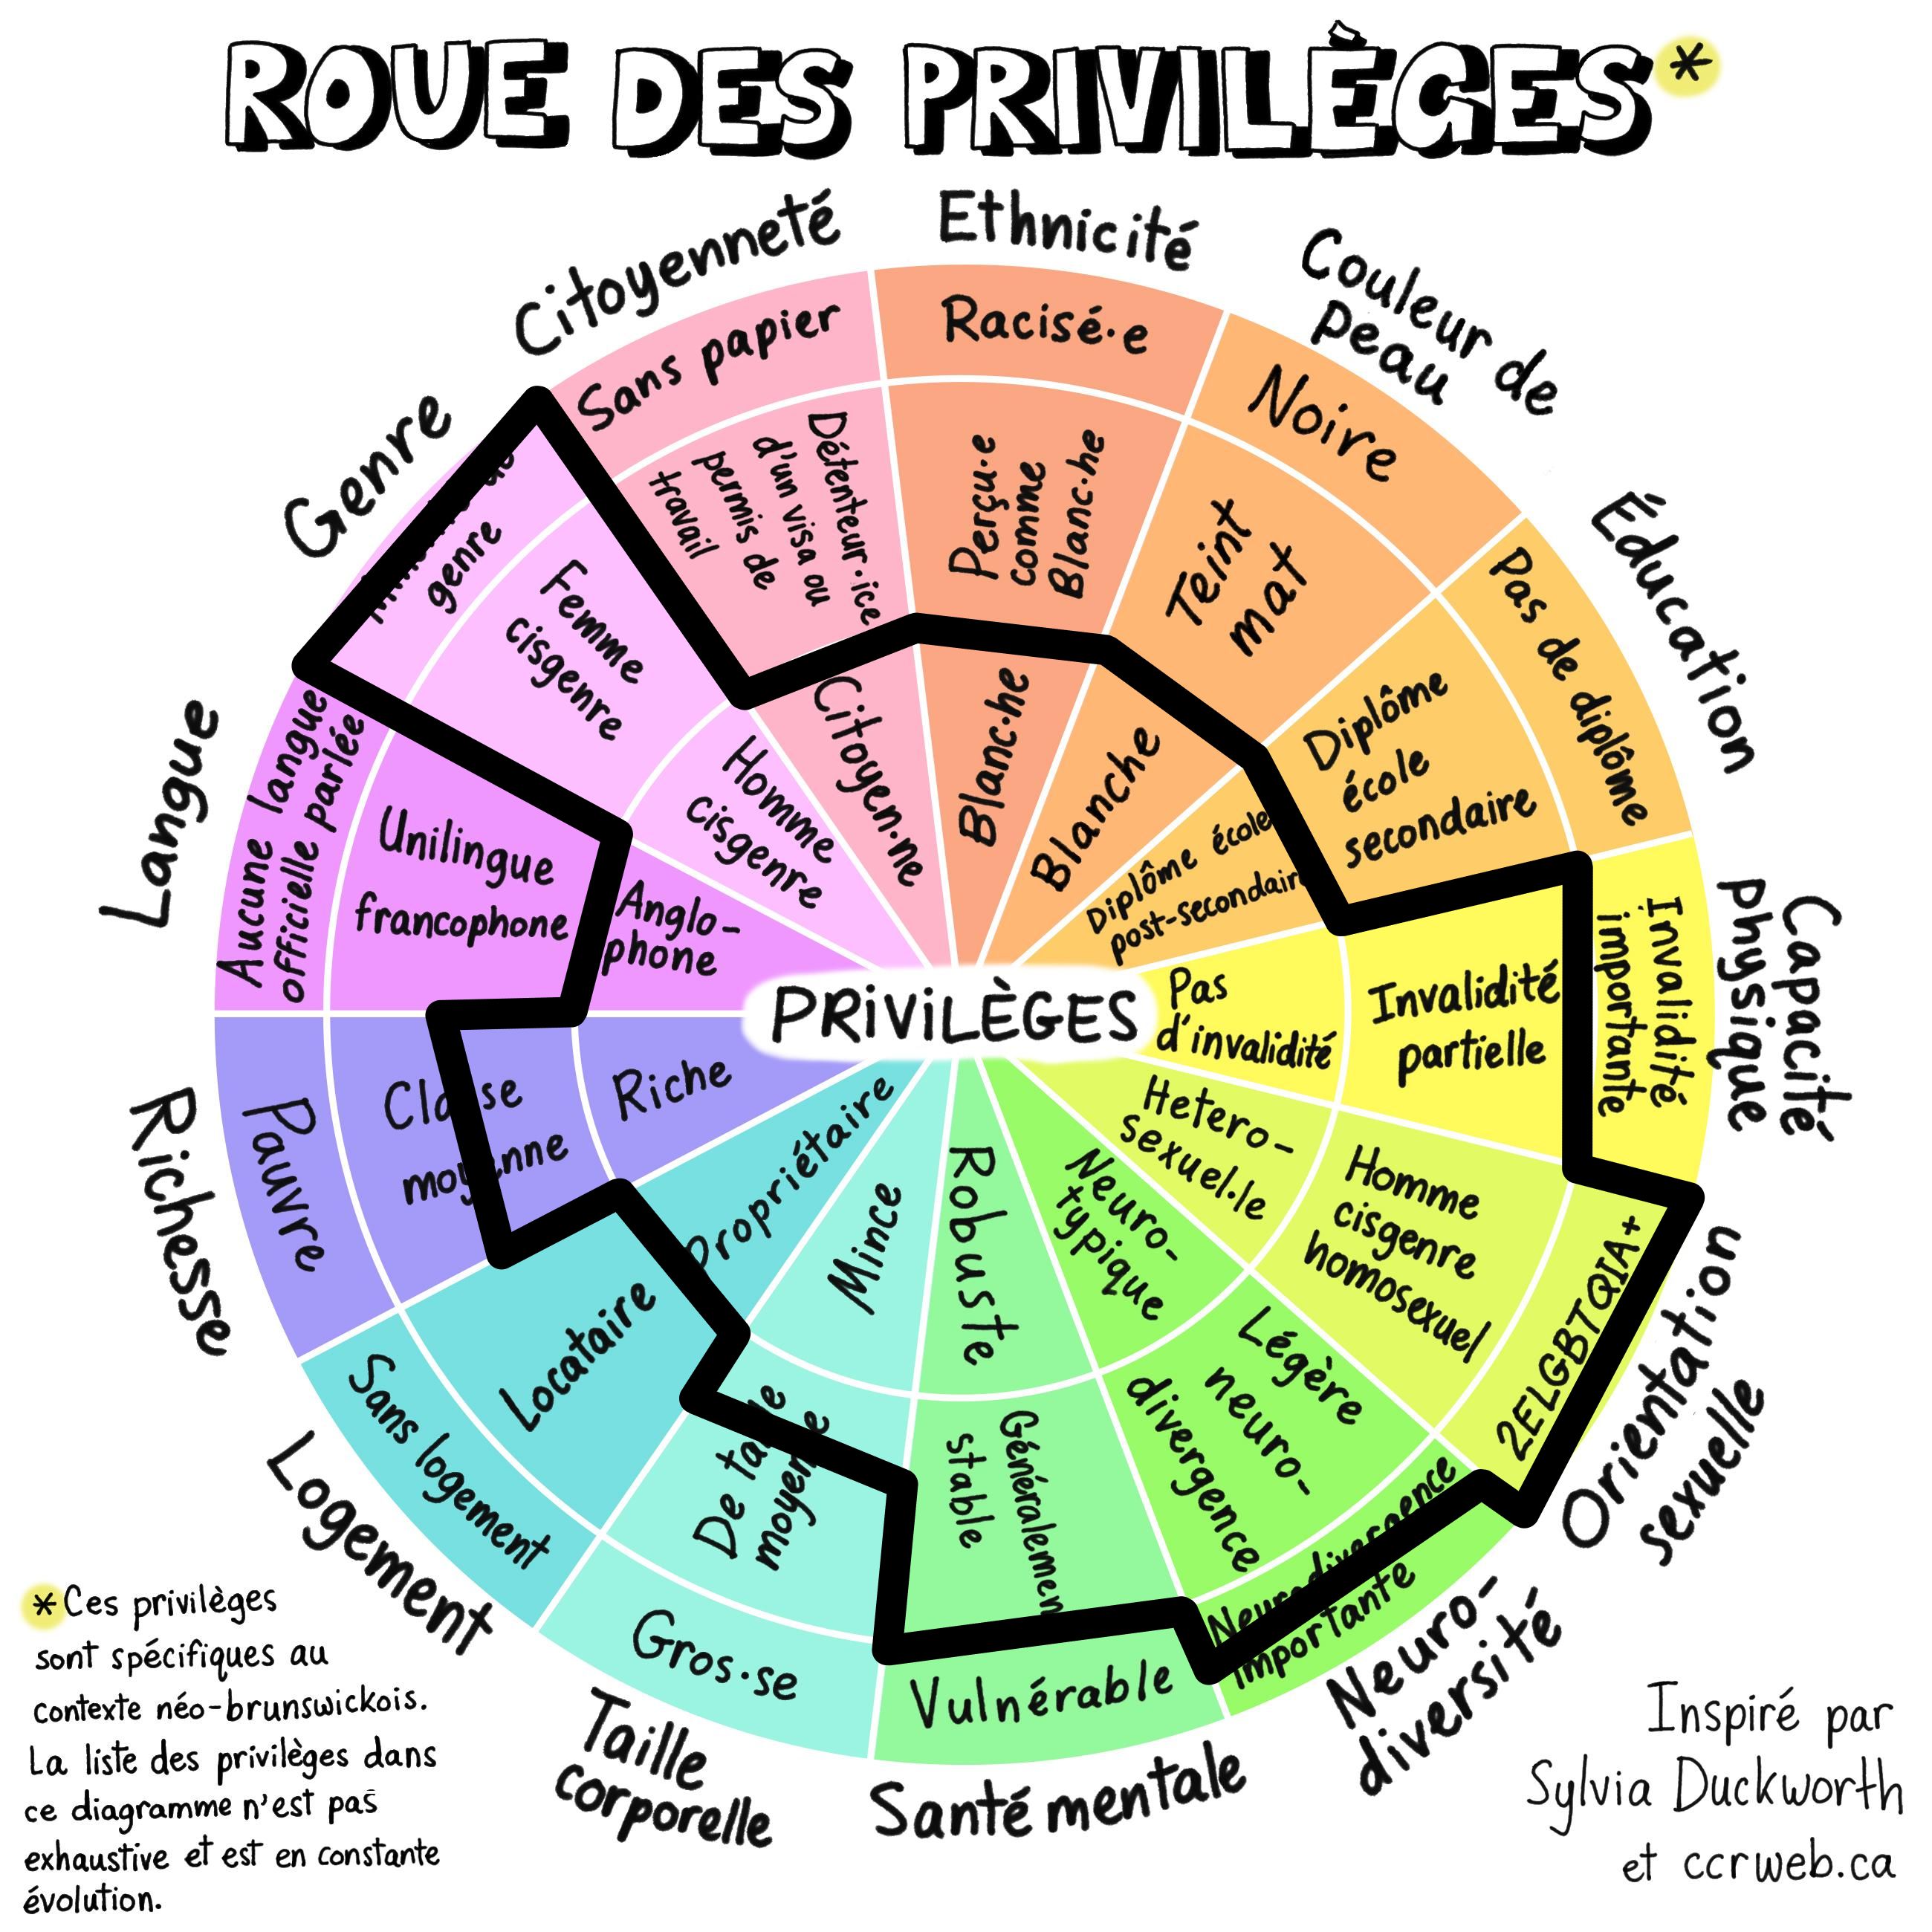 ROUE DES PRIVILÈGES*
Citoyenneté
Sans papier
Détenteur·ice
d'un visa ou
permis de
travail
Citoyen·ne
Ethnicité
Racisé·e
Perçu·e
comme
Blanc·he
Blanc·he
Couleur de
peau
Noire
Teint
mat
Blanche
Éducation
Pas de diplôme
Diplôme
école
secondaire
Diplôme école
post-secondaire
Capacité
physique
Invalidité
importante
Invalidité
partielle
Pas
d'invalidité
Orientation
sexuelle
2ELGBTQIA+
Homme
cisgenre
homosexuel
Hetero-
sexuel·le
Neuro-
diversité
Neurodivergence
importante
Légère
neuro-
divergence
Neuro-
typique
Santé mentale
Vulnérable
Généralement
stable
Robuste
Taille
corporelle
Gros·se
De taille
moyenne
Mince
Logement
Sans logement
Locataire
Propriétaire
Richesse
Pauvre
Classe
moyenne
Riche
Langue
Aucune langue
officielle parlée
Unilingue
francophone
Anglo-
phone
Genre
genre
Femme
cisgenre
Homme
cisgenre
PRIVILÈGES
*Ces privilèges
sont spécifiques au
contexte néo-brunswickois.
La liste des privilèges dans
ce diagramme n'est pas
exhaustive et est en constante
évolution.
Inspiré par
Sylvia Duckworth
et ccrweb.ca